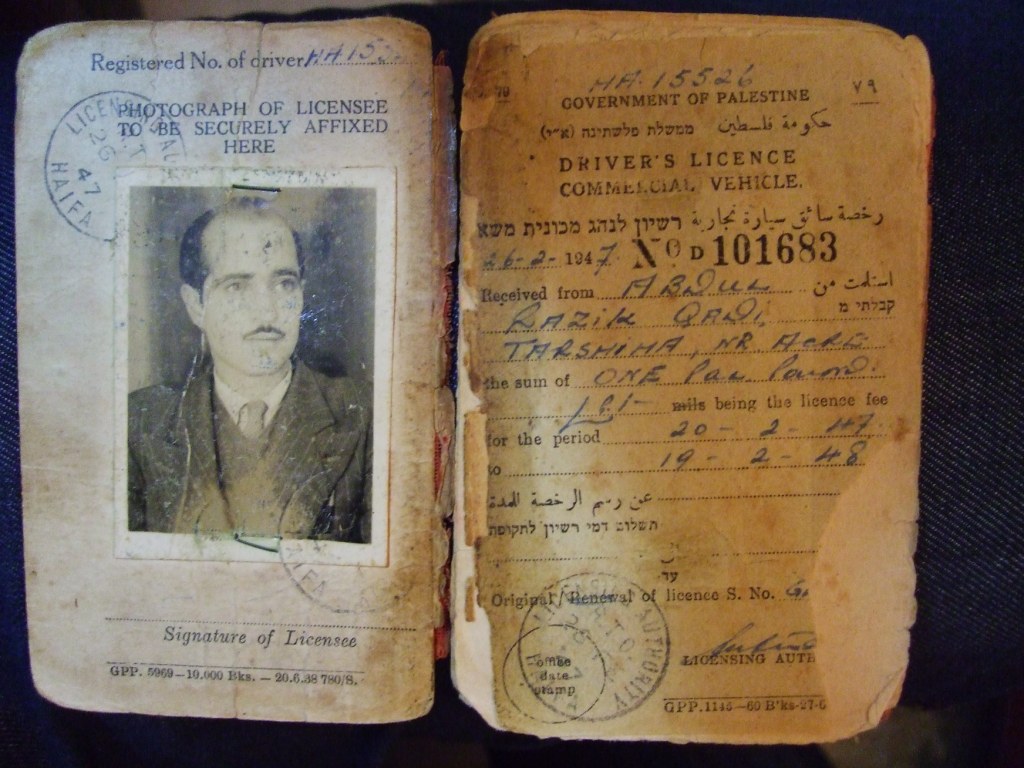 Registered No. of driver HA 155
PHOTOGRAPH OF LICENSEE
TO BE SECURELY AFFIXED
HERE
LICENSING AUT
26
47
HAIFA
Signature of Licensee
GPP. 5969—10.000 Bks. — 20.6.38 780/S.
HA. 15526
79
٧٩
GOVERNMENT OF PALESTINE
حكومة فلسطين ממשלת פלשתינה (א״י)
DRIVER'S LICENCE
COMMERCIAL VEHICLE.
رخصة سائق سيارة تجارية רשיון לנהג מכונית משא
26-2-1947 No D 101683
Received from ABDUL استلمت من
RAZIK QADI, קבלתי מ
TARSHIHA, NR ACRE
the sum of ONE Pal. Pound.
mils being the licence fee
for the period 20 - 2 - 47
to 19 - 2 - 48
عن رسم الرخصة المدة
תשלום דמי רשיון לתקופת
עד
Original / Renewal of licence S. No.
LICENSING AUTHORITY
office
date
stamp
LICENSING AUTH
GPP.1145—60 B'ks-27-6